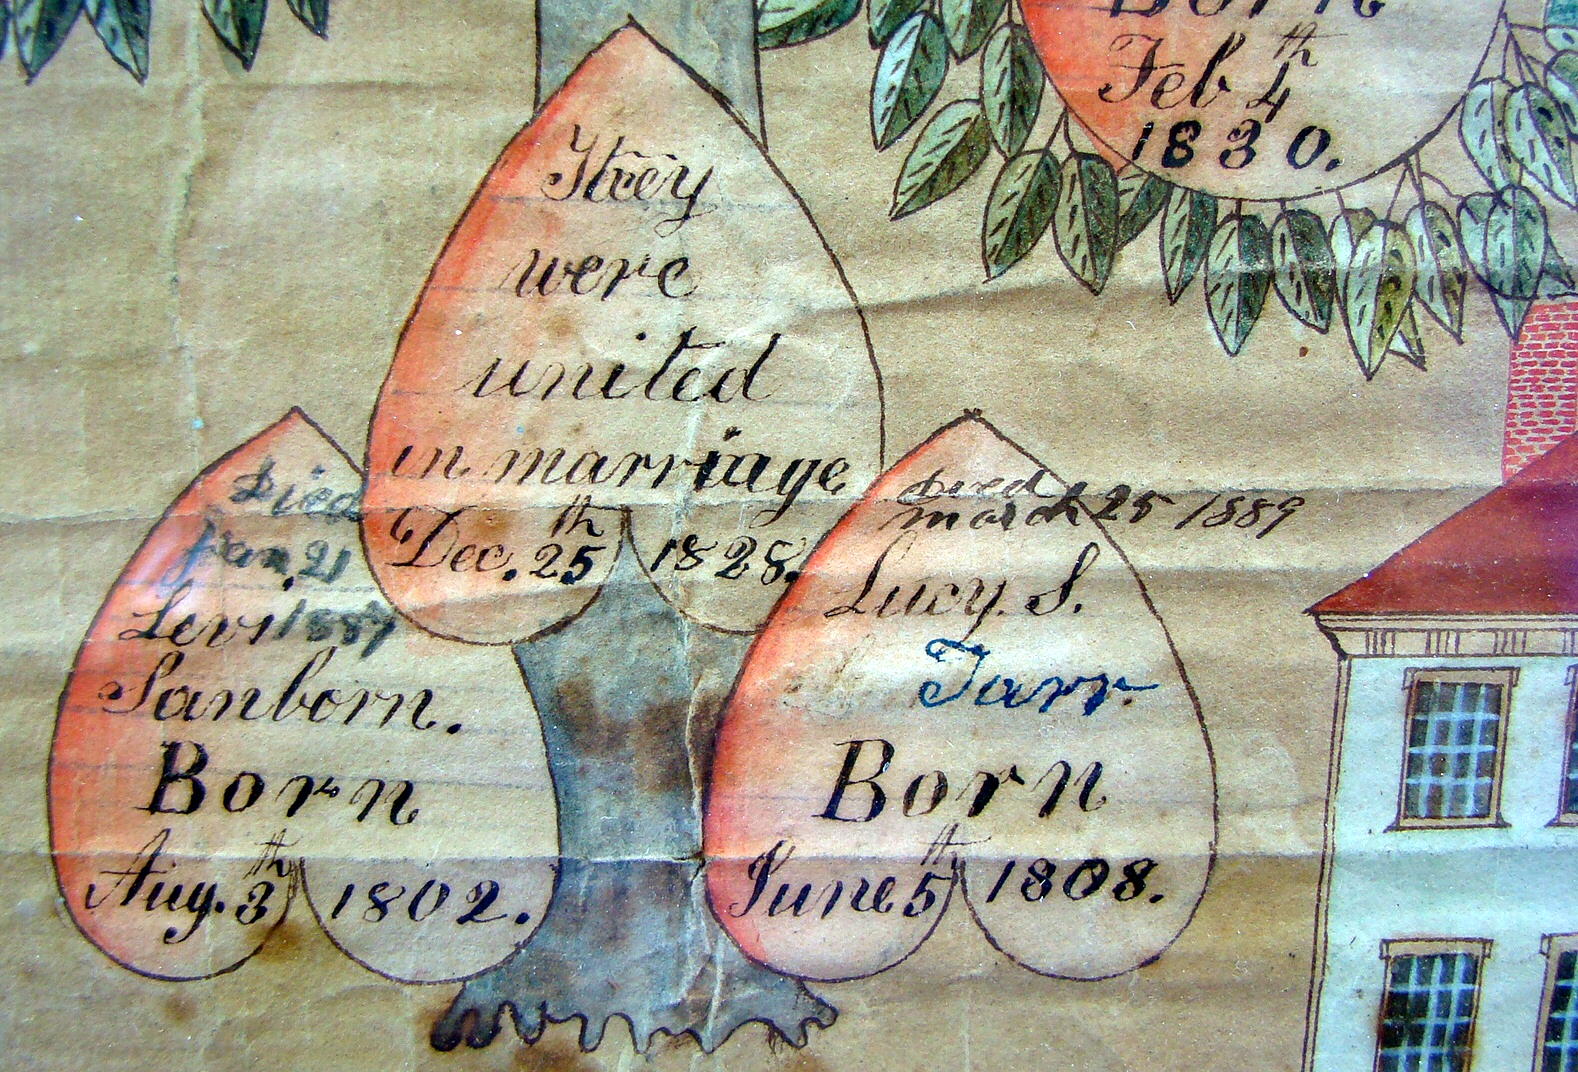 Born
Feb 4th
1830.
They
were
united
in marriage
Dec. 25th 1828.
Died
Jan, 21
1889
Levi
Sanborn.
Born
Aug. 3th 1802.
Died
March 25 1889
Lucy. S.
Tarr.
Born
June 5th 1808.